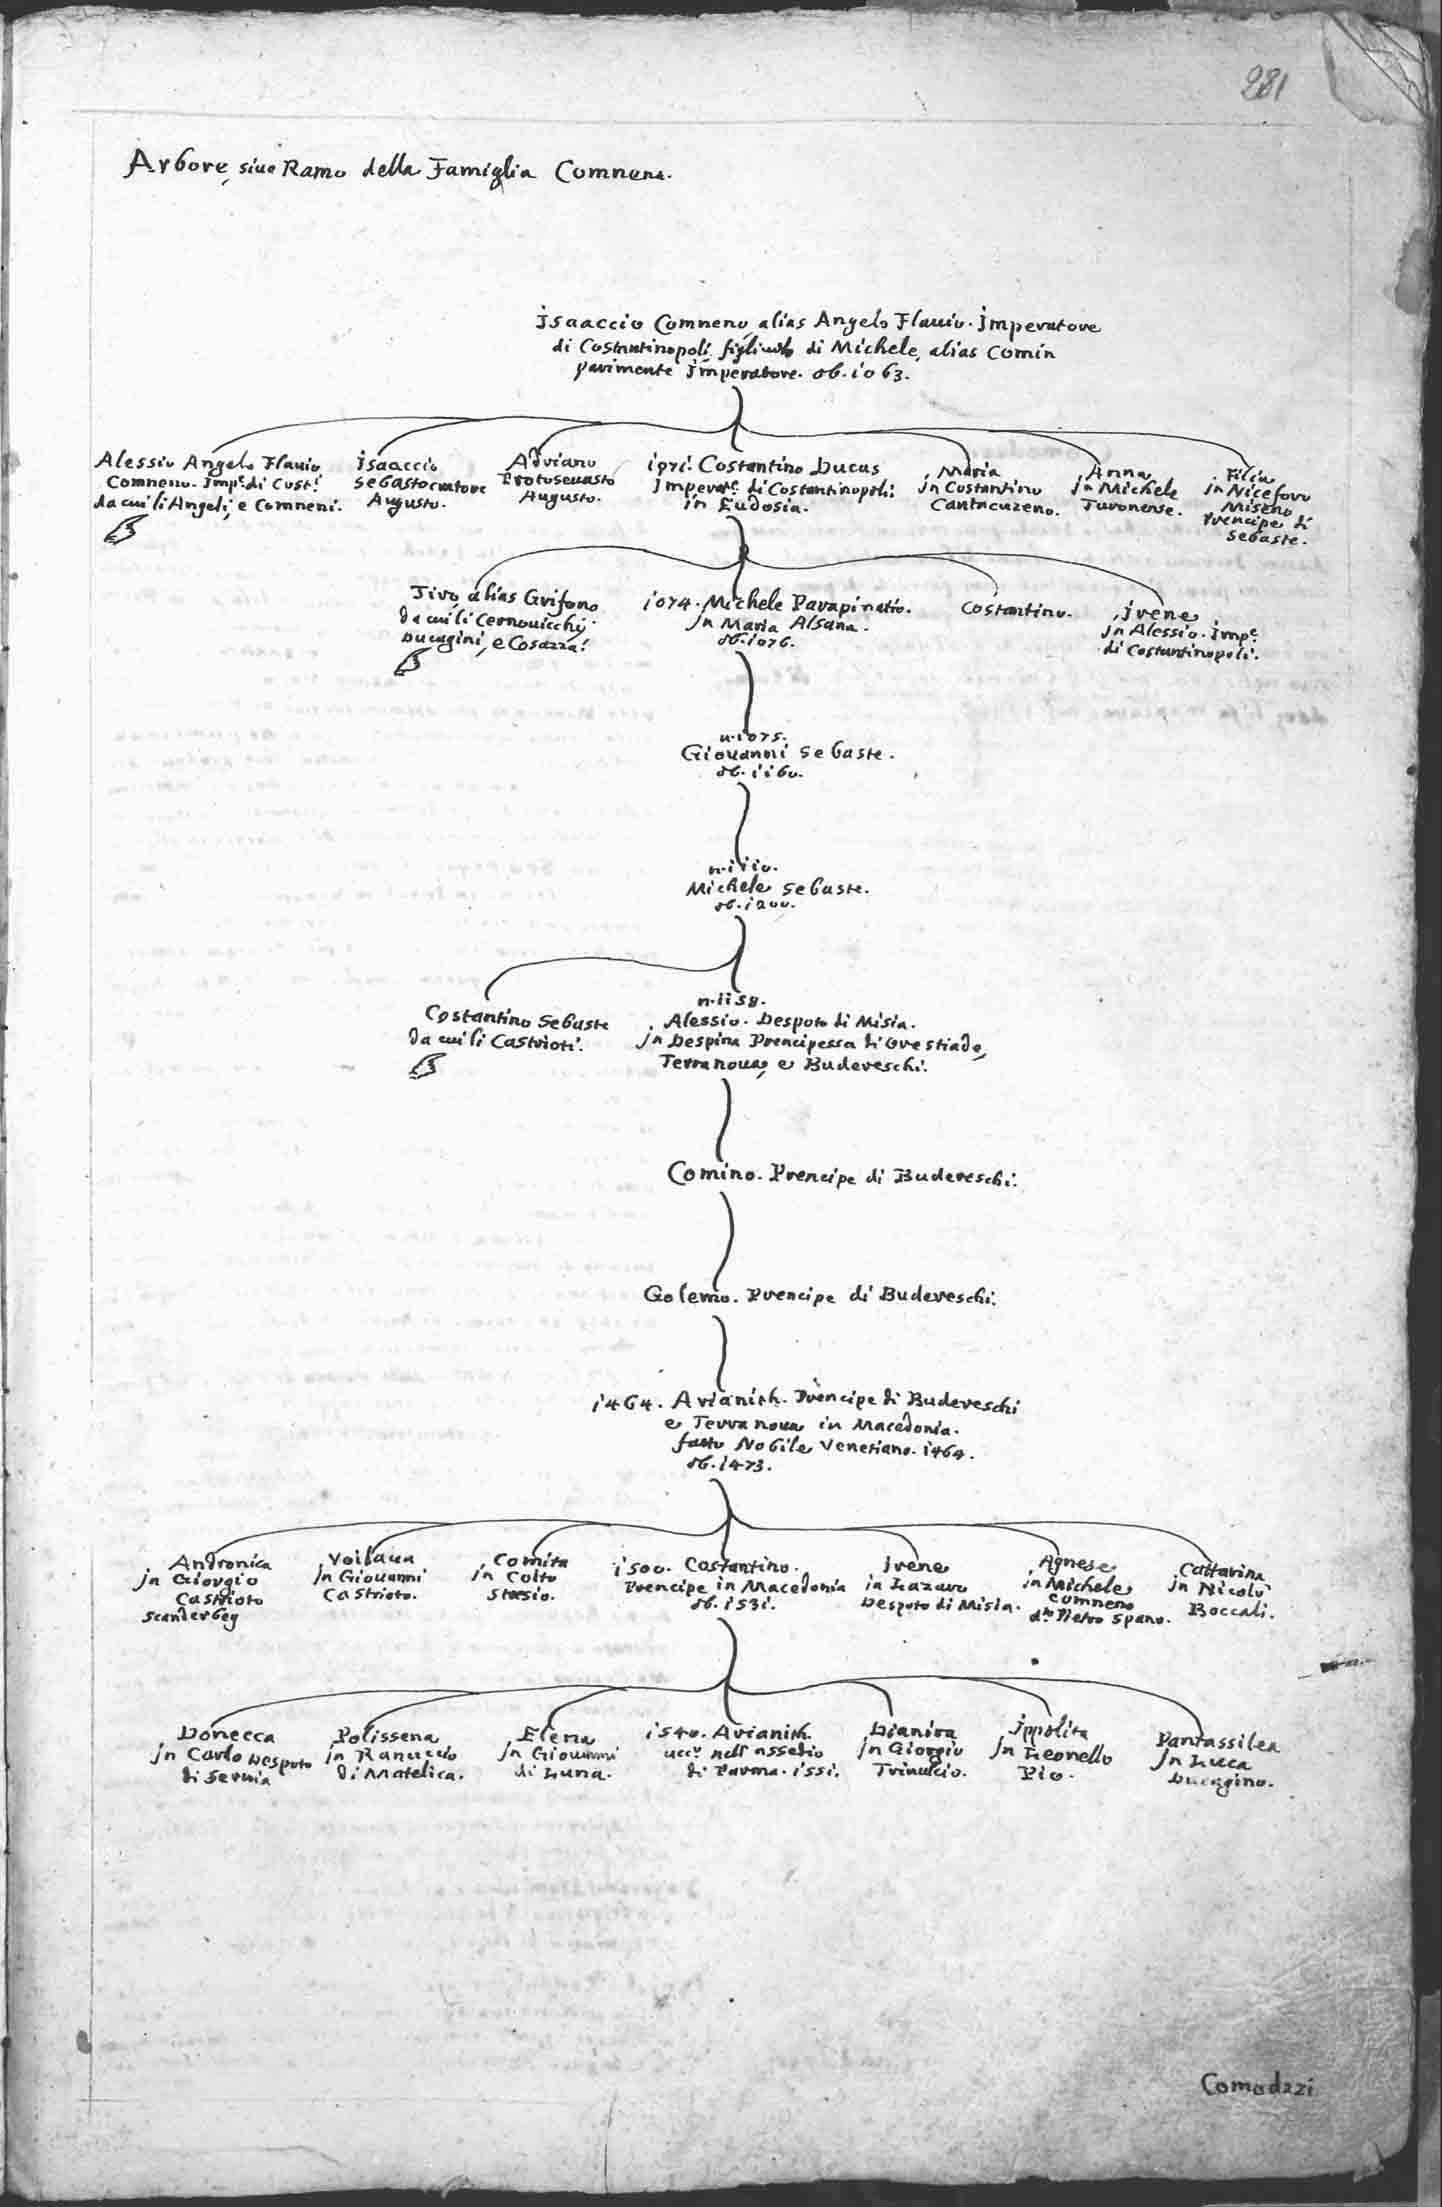 281
Arbore, siue Ramo della Famiglia Comnena.
Isaaccio Comneno, alias Angelo Flauio. Imperatore
di Costantinopoli figliuolo di Michele, alias Comin
parimente Imperatore. ob. 1063.
Alessio Angelo Flauio
Comneno. Imp.e di Cost.i
da cui li Angeli, e Comneni.
Isaaccio
Sebastocratore
Augusto.
Adriano
Protoseuasto
Augusto.
1071. Costantino Ducas
Imperat.e di Costantinopoli
in Eudosia.
Maria
in Costantino
Cantacuzeno.
Anna
in Michele
Turonense.
Filia
in Niceforo
Miseno
Prencipe di
Sebaste.
Tiro, alias Grifono
da cui li Cernouicchij
Ducagini, e Cosazza.
1074. Michele Parapinatio.
in Maria Alsana.
ob. 1076.
Costantino.
Irene
in Alessio. Imp.e
di Costantinopoli.
n. 1075.
Giouanni Sebaste.
ob. 1160.
n. 1110.
Michele Sebaste.
ob. 1200.
Costantino Sebaste
da cui li Castrioti.
n. 1158.
Alessio. Despoto di Misia.
in Despina Prencipessa di Orestiade,
Terranoua, e Budereschi.
Comino. Prencipe di Budereschi.
Golemo. Prencipe di Budereschi.
1464. Arianith. Prencipe di Budereschi
e Terranoua in Macedonia.
fatto Nobile Venetiano. 1464.
ob. 1473.
Andronica
in Giorgio
Castrioto
Scanderbeg
Voisaua
in Giouanni
Castrioto.
Comita
in Coito
Stresio.
1500. Costantino.
Prencipe in Macedonia
ob. 1531.
Irene
in Lazaro
Despoto di Misia.
Agnese
in Michele
Comneno
d.to Pietro Spano.
Cattarina
in Nicolò
Boccali.
Donecca
in Carlo Despoto
di Seruia
Polissena
in Ranuccio
di Matelica.
Elena
in Giouanni
di Luna.
1540. Arianith.
ucc.o nell' assedio
di Parma. 1551.
Dianira
in Giorgio
Triuulcio.
Ippolita
in Leonello
Pio.
Pantassilea
in Luca
Ducagino.
Comadizzi